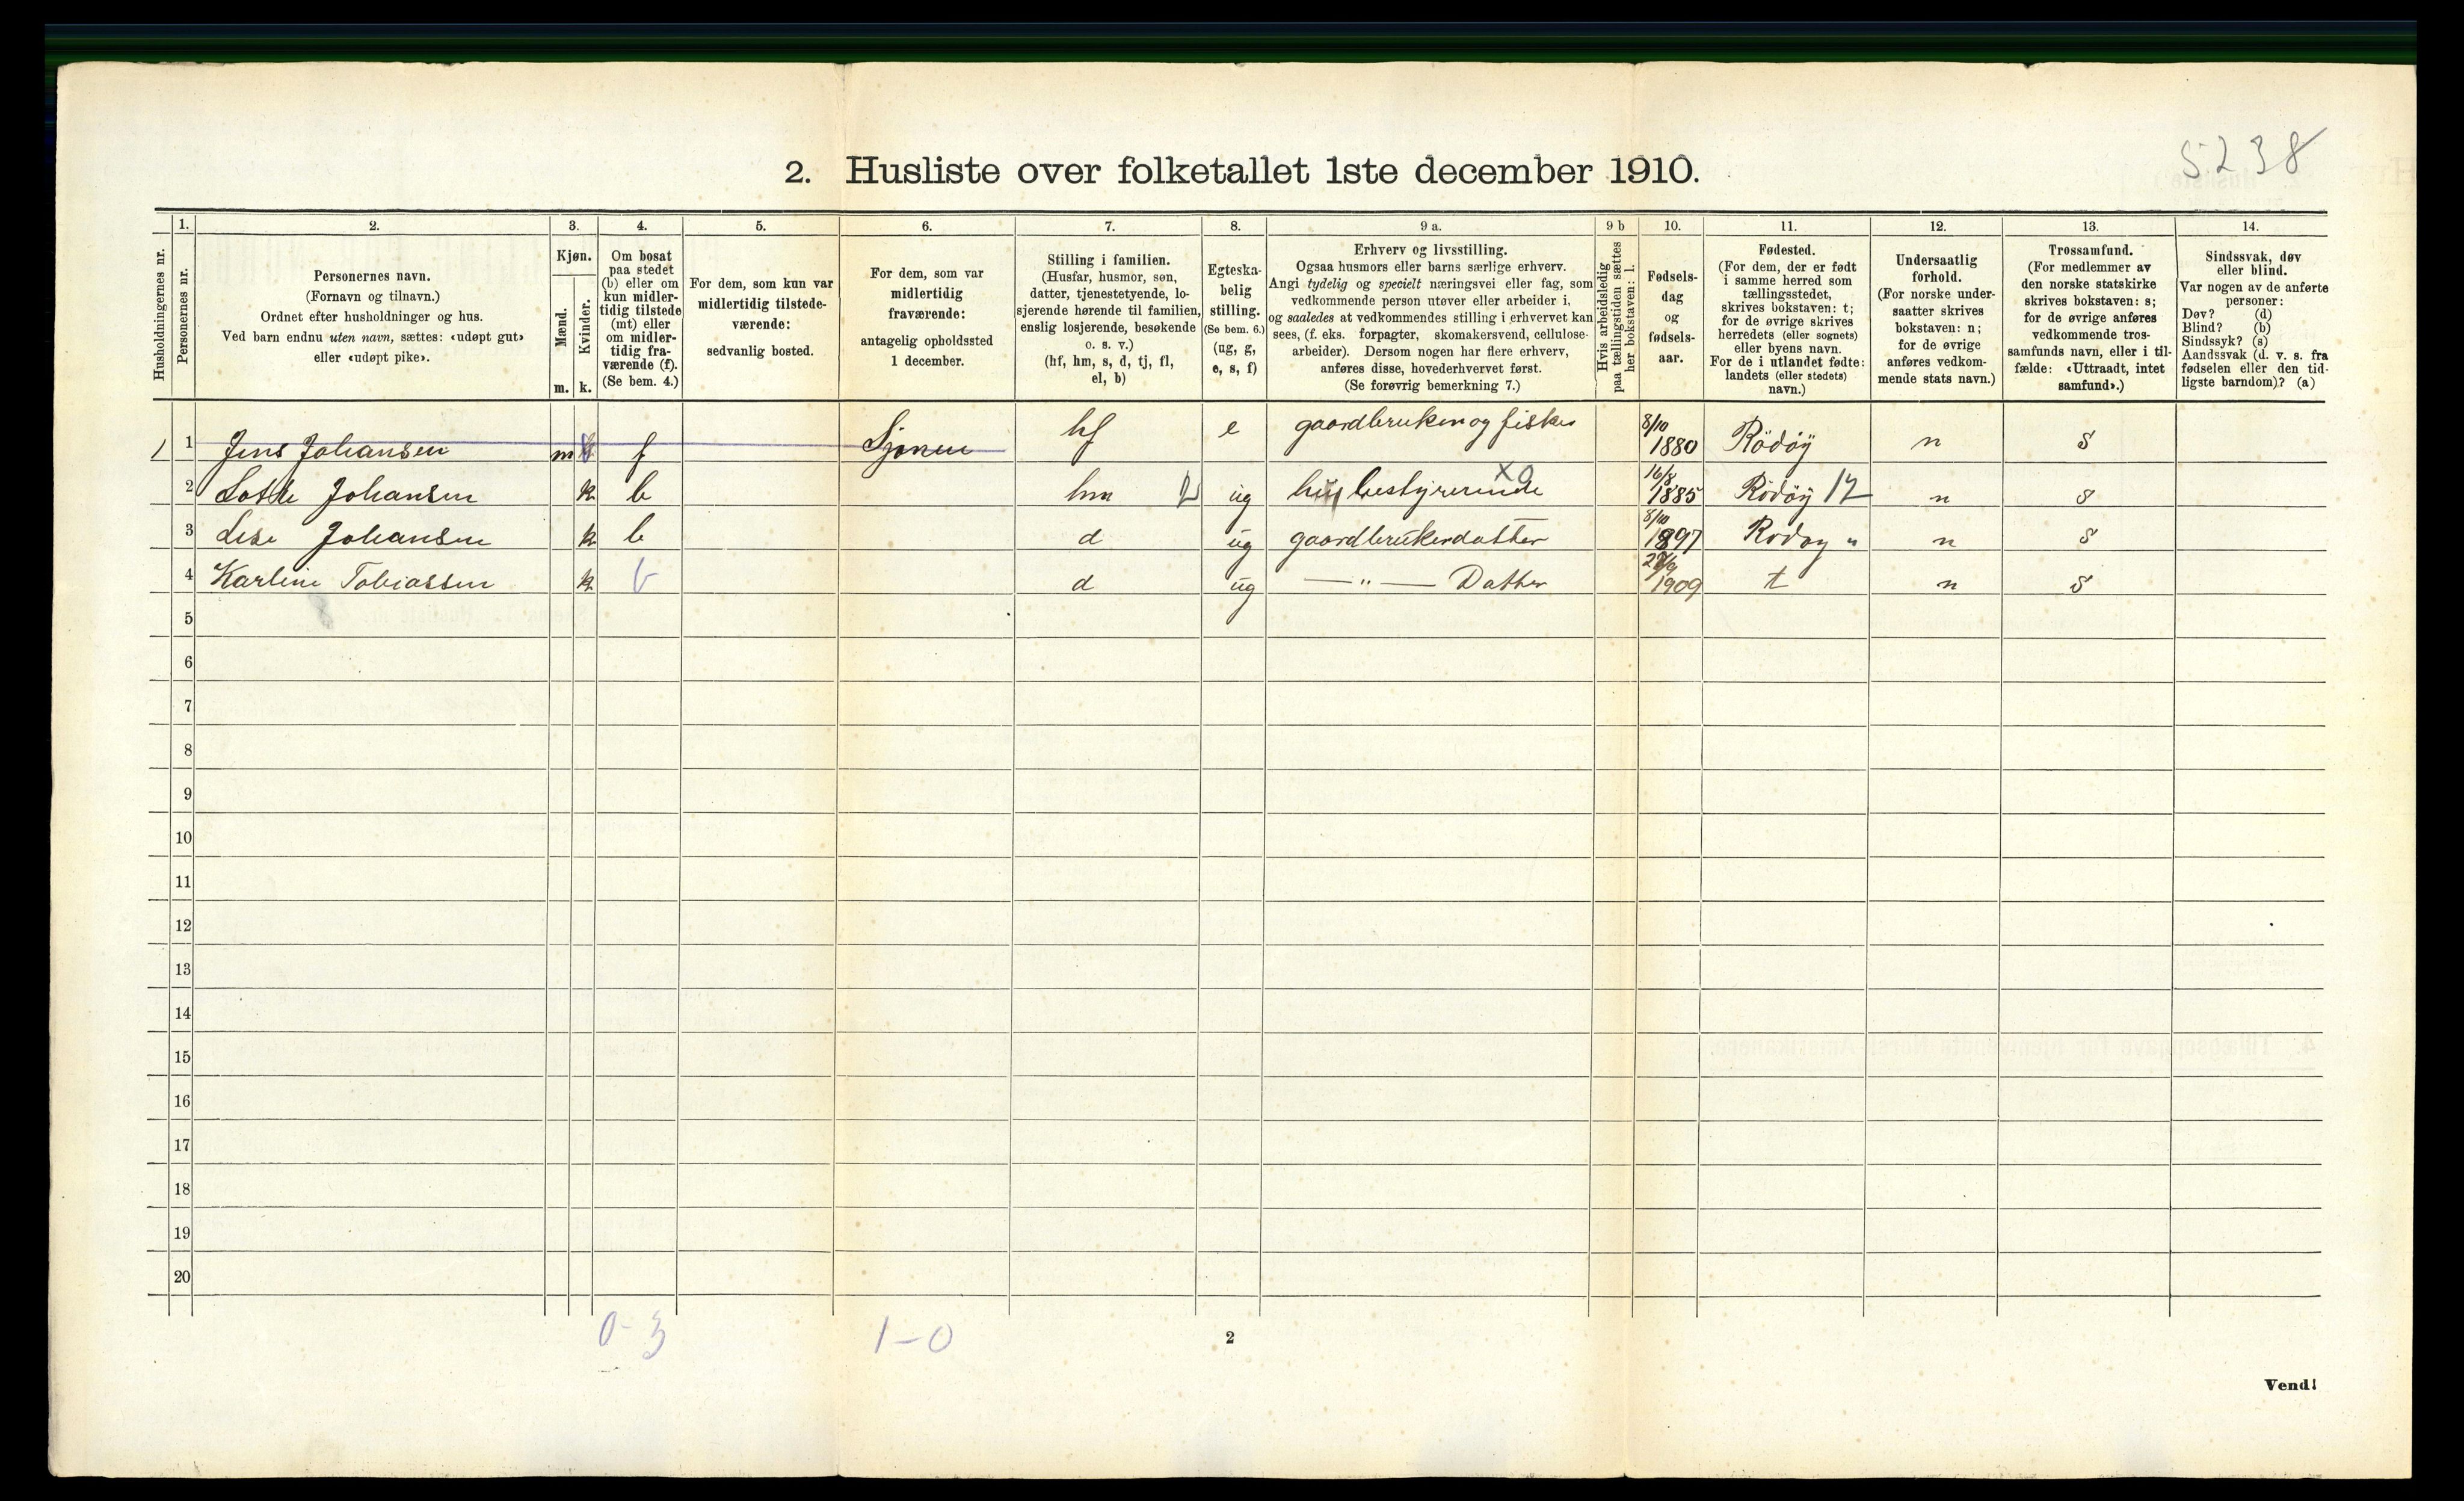 5238
2. Husliste over folketallet 1ste december 1910.
Husholdningernes nr.
1.
Personernes nr.
2.
Personernes navn.
(Fornavn og tilnavn.)
Ordnet efter husholdninger og hus.
Ved barn endnu uten navn, sættes: «udøpt gut»
eller «udøpt pike».
3.
Kjøn.
Mænd.
Kvinder.
m. k.
4.
Om bosat
paa stedet
(b) eller om
kun midler-
tidig tilstede
(mt) eller
om midler-
tidig fra-
værende (f).
(Se bem. 4.)
5.
For dem, som kun var
midlertidig tilstede-
værende:
sedvanlig bosted.
6.
For dem, som var
midlertidig
fraværende:
antagelig opholdssted
1 december.
7.
Stilling i familien.
(Husfar, husmor, søn,
datter, tjenestetyende, lo-
sjerende hørende til familien,
enslig losjerende, besøkende
o. s. v.)
(hf, hm, s, d, tj, fl,
el, b)
8.
Egteska-
belig
stilling.
(Se bem. 6.)
(ug, g,
e, s, f)
9 a.
Erhverv og livsstilling.
Ogsaa husmors eller barns særlige erhverv.
Angi tydelig og specielt næringsvei eller fag, som
vedkommende person utøver eller arbeider i,
og saaledes at vedkommendes stilling i erhvervet kan
sees, (f. eks. forpagter, skomakersvend, cellulose-
arbeider). Dersom nogen har flere erhverv,
anføres disse, hovederhvervet først.
(Se forøvrig bemerkning 7.)
9 b
Hvis arbeidsledig
paa tællingstiden sættes
her bokstaven: l.
10.
Fødsels-
dag
og
fødsels-
aar.
11.
Fødested.
(For dem, der er født
i samme herred som
tællingsstedet,
skrives bokstaven: t;
for de øvrige skrives
herredets (eller sognets)
eller byens navn.
For de i utlandet fødte:
landets (eller stedets)
navn.)
12.
Undersaatlig
forhold.
(For norske under-
saatter skrives
bokstaven: n;
for de øvrige
anføres vedkom-
mende stats navn.)
13.
Trossamfund.
(For medlemmer av
den norske statskirke
skrives bokstaven: s;
for de øvrige anføres
vedkommende tros-
samfunds navn, eller i til-
fælde: «Uttraadt, intet
samfund».)
14.
Sindssvak, døv
eller blind.
Var nogen av de anførte
personer:
Døv? (d)
Blind? (b)
Sindssyk? (s)
Aandssvak (d. v. s. fra
fødselen eller den tid-
ligste barndom)? (a)
1 1 Jens Johansen m f Sjonen hf e gaardbruker og fisker 8/10 1880 Rödöy n s
2 Lotte Johansen k b hm 2 ug husbestyrerinde X0 16/8 1885 Rödöy 17 n s
3 Lise Johansen k b d ug gaardbrukerdatter 8/10 1897 Rodoy " n s
4 Karline Tobiassen k b d ug — " — Datter 1909 t n s
5
6
7
8
9
10
11
12
13
14
15
16
17
18
19
20
0-3 1-0
2
Vend!